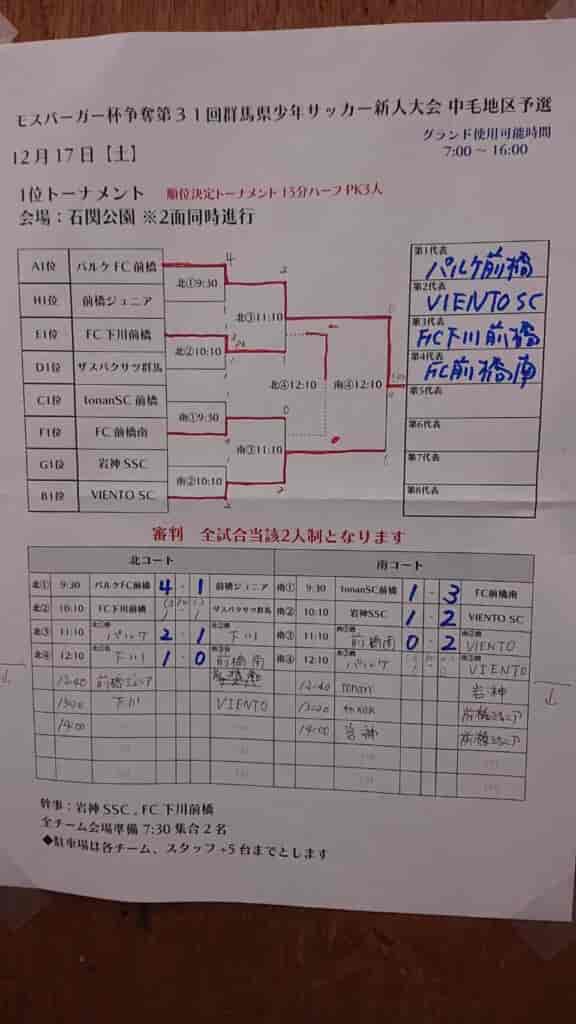 モスバーガー杯争奪第31回群馬県少年サッカー新人大会 中毛地区予選
グランド使用可能時間
12月17日【土】
7:00～16:00
1位トーナメント 順位決定トーナメント 15分ハーフ PK3人
会場：石関公園 ※2面同時進行
A1位 パルケ FC 前橋
H1位 前橋ジュニア
E1位 FC 下川前橋
D1位 ザスパクサツ群馬
C1位 tonanSC 前橋
F1位 FC 前橋南
G1位 岩神 SSC
B1位 VIENTO SC
4
北①9:30
北②10:10
南①9:30
南②10:10
2
北③11:10
0
南③11:10
2
北④12:10
南④12:10
第1代表
パルケ前橋
第2代表
VIENTO SC
第3代表
FC下川前橋
第4代表
FC前橋南
第5代表
第6代表
第7代表
第8代表
審判 全試合当該2人制となります
北コート 南コート
北① 9:30 パルケFC前橋 4 - 1 前橋ジュニア 南① 9:30 tonanSC前橋 1 - 3 FC前橋南
北② 10:10 FC下川前橋 ザスパクサツ群馬 南② 10:10 岩神SSC 1 - 2 VIENTO SC
北③ 11:10 パルケ 2 - 1 下川 南③ 11:10 前橋南 0 - 2 VIENTO
北④ 12:10 下川 1 - 0 前橋南 南④ 12:10 パルケ VIENTO
12:40 前橋ジュニア 12:40 tonan 岩神
13:20 下川 VIENTO 13:20 tonan 前橋ジュニア
14:00 14:00 岩神 前橋ジュニア
幹事：岩神 SSC , FC 下川前橋
全チーム会場準備 7:30 集合 2 名
◆駐車場は各チーム、スタッフ+5 台までとします